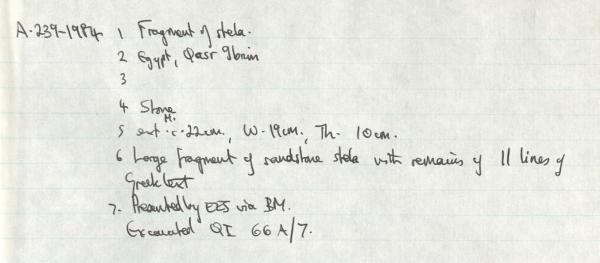 A.239-1984 1 Fragment of stela.
2 Egypt, Qasr Ibrim
3
4 Stone
5 ext. H. c. 22cm., W. 19cm., Th. 10cm.
6 Large fragment of sandstone stela with remains of 11 lines of
Greek text
7. Presented by EES via BM.
Excavated QI 66 A/7.